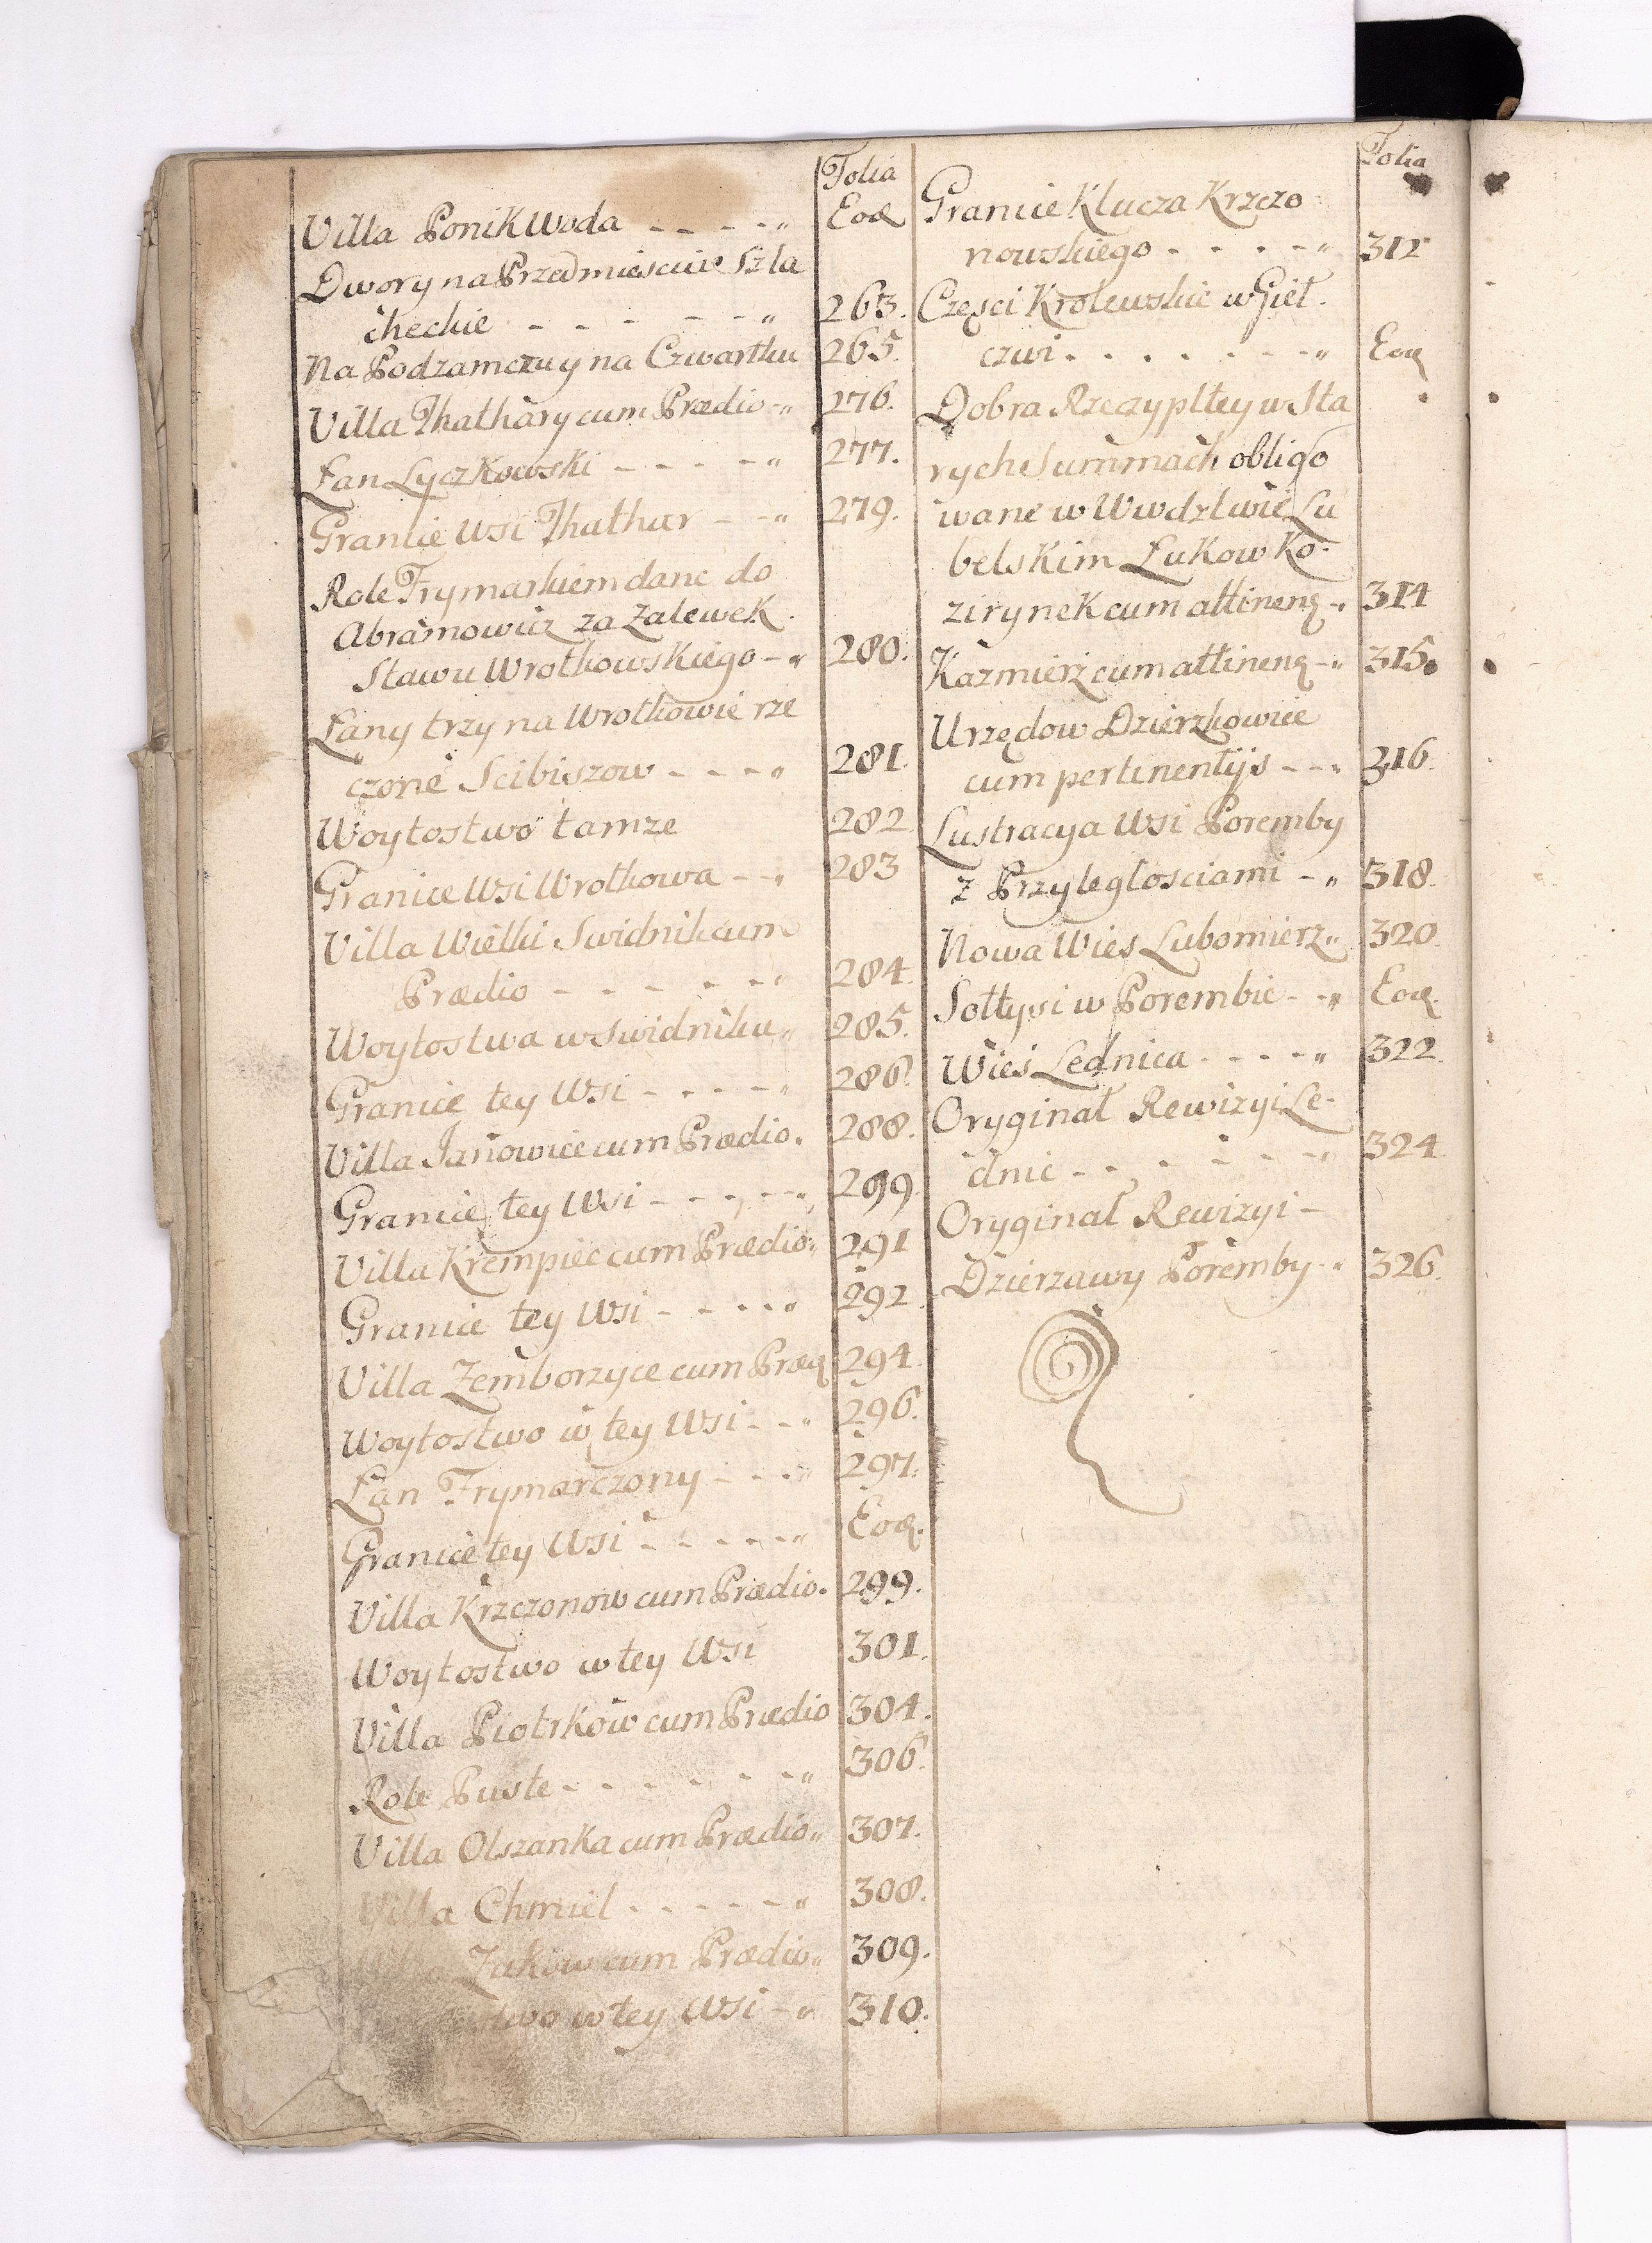 Folia
Villa Ponikwoda - - - - „ Eoď
Dwory na Przedmiesciu Szla
checkie - - - - - - „ 263.
Na Podzamczu y na Czwartku 265.
Villa Thathary cum Prædio - „ 276.
Łan Lyczkowski - - - - „ 277.
Granice Wsi Thathar - - „ 279.
Role Frymarkiem dane do
Abramowic za Zalewek
Stawu Wrotkowskiego - „ 280.
Łany trzy na Wrotkowie rze
czone Scibiszow - - - „ 281.
Woytostwo tamze 282
Granice Wsi Wrotkowa - - „ 283
Villa Wielki Swidnik cum
Prædio - - - - - - „ 284.
Woytostwa w Swidniku „ 285.
Granice tey Wsi - - - - „ 286.
Villa Janowice cum Prædio. 288.
Granice tey Wsi - - - - „ 299.
Villa Krempiec cum Prædio „ 291
Granice tey Wsi - - - - „ 292
Villa Zemborzyce cum Præď 294.
Woytostwo w tey Wsi - - „ 296.
Łan Frymarczony - - - „ 297.
Granice tey Wsi - - - - - „ Eoď.
Villa Krzczonow cum Prædio. 299.
Woytostwo w tey Wsi 301.
Villa Piotrkow cum Prædio 304.
Role Puste - - - - - - „ 306.
Villa Olszanka cum Prædio „ 307.
Villa Chmiel - - - - - „ 308.
Zukow cum Prædio „ 309.
w tey Wsi - „ 310.
Folia
Granice Klucza Krzczo
nowskiego - - - - „ 312
Częsci Krolewskie w Gieł
czwi - - - - - - - „ Eoď
Dobra Rzeczypltey w Sta
rych Summach obligo
wane w Wwdztwie Lu
belskim Łukow Ko-
zirynek cum attinenď - „ 314
Kazmierz cum attinenď - „ 315.
Urzędow Dzierzkowice
cum pertinentijs - - „ 316.
Lustracya Wsi Poremby
z Przyległosciami - „ 318.
Nowa Wies Lubomierz „ 320.
Sołtysi w Porembie - „ Eoď.
Wies Lednica - - - - „ 322.
Oryginał Rewizyi Le-
dnic - - - - - - - „ 324.
Oryginał Rewizyi -
Dzierzawy Poremby - „ 326.